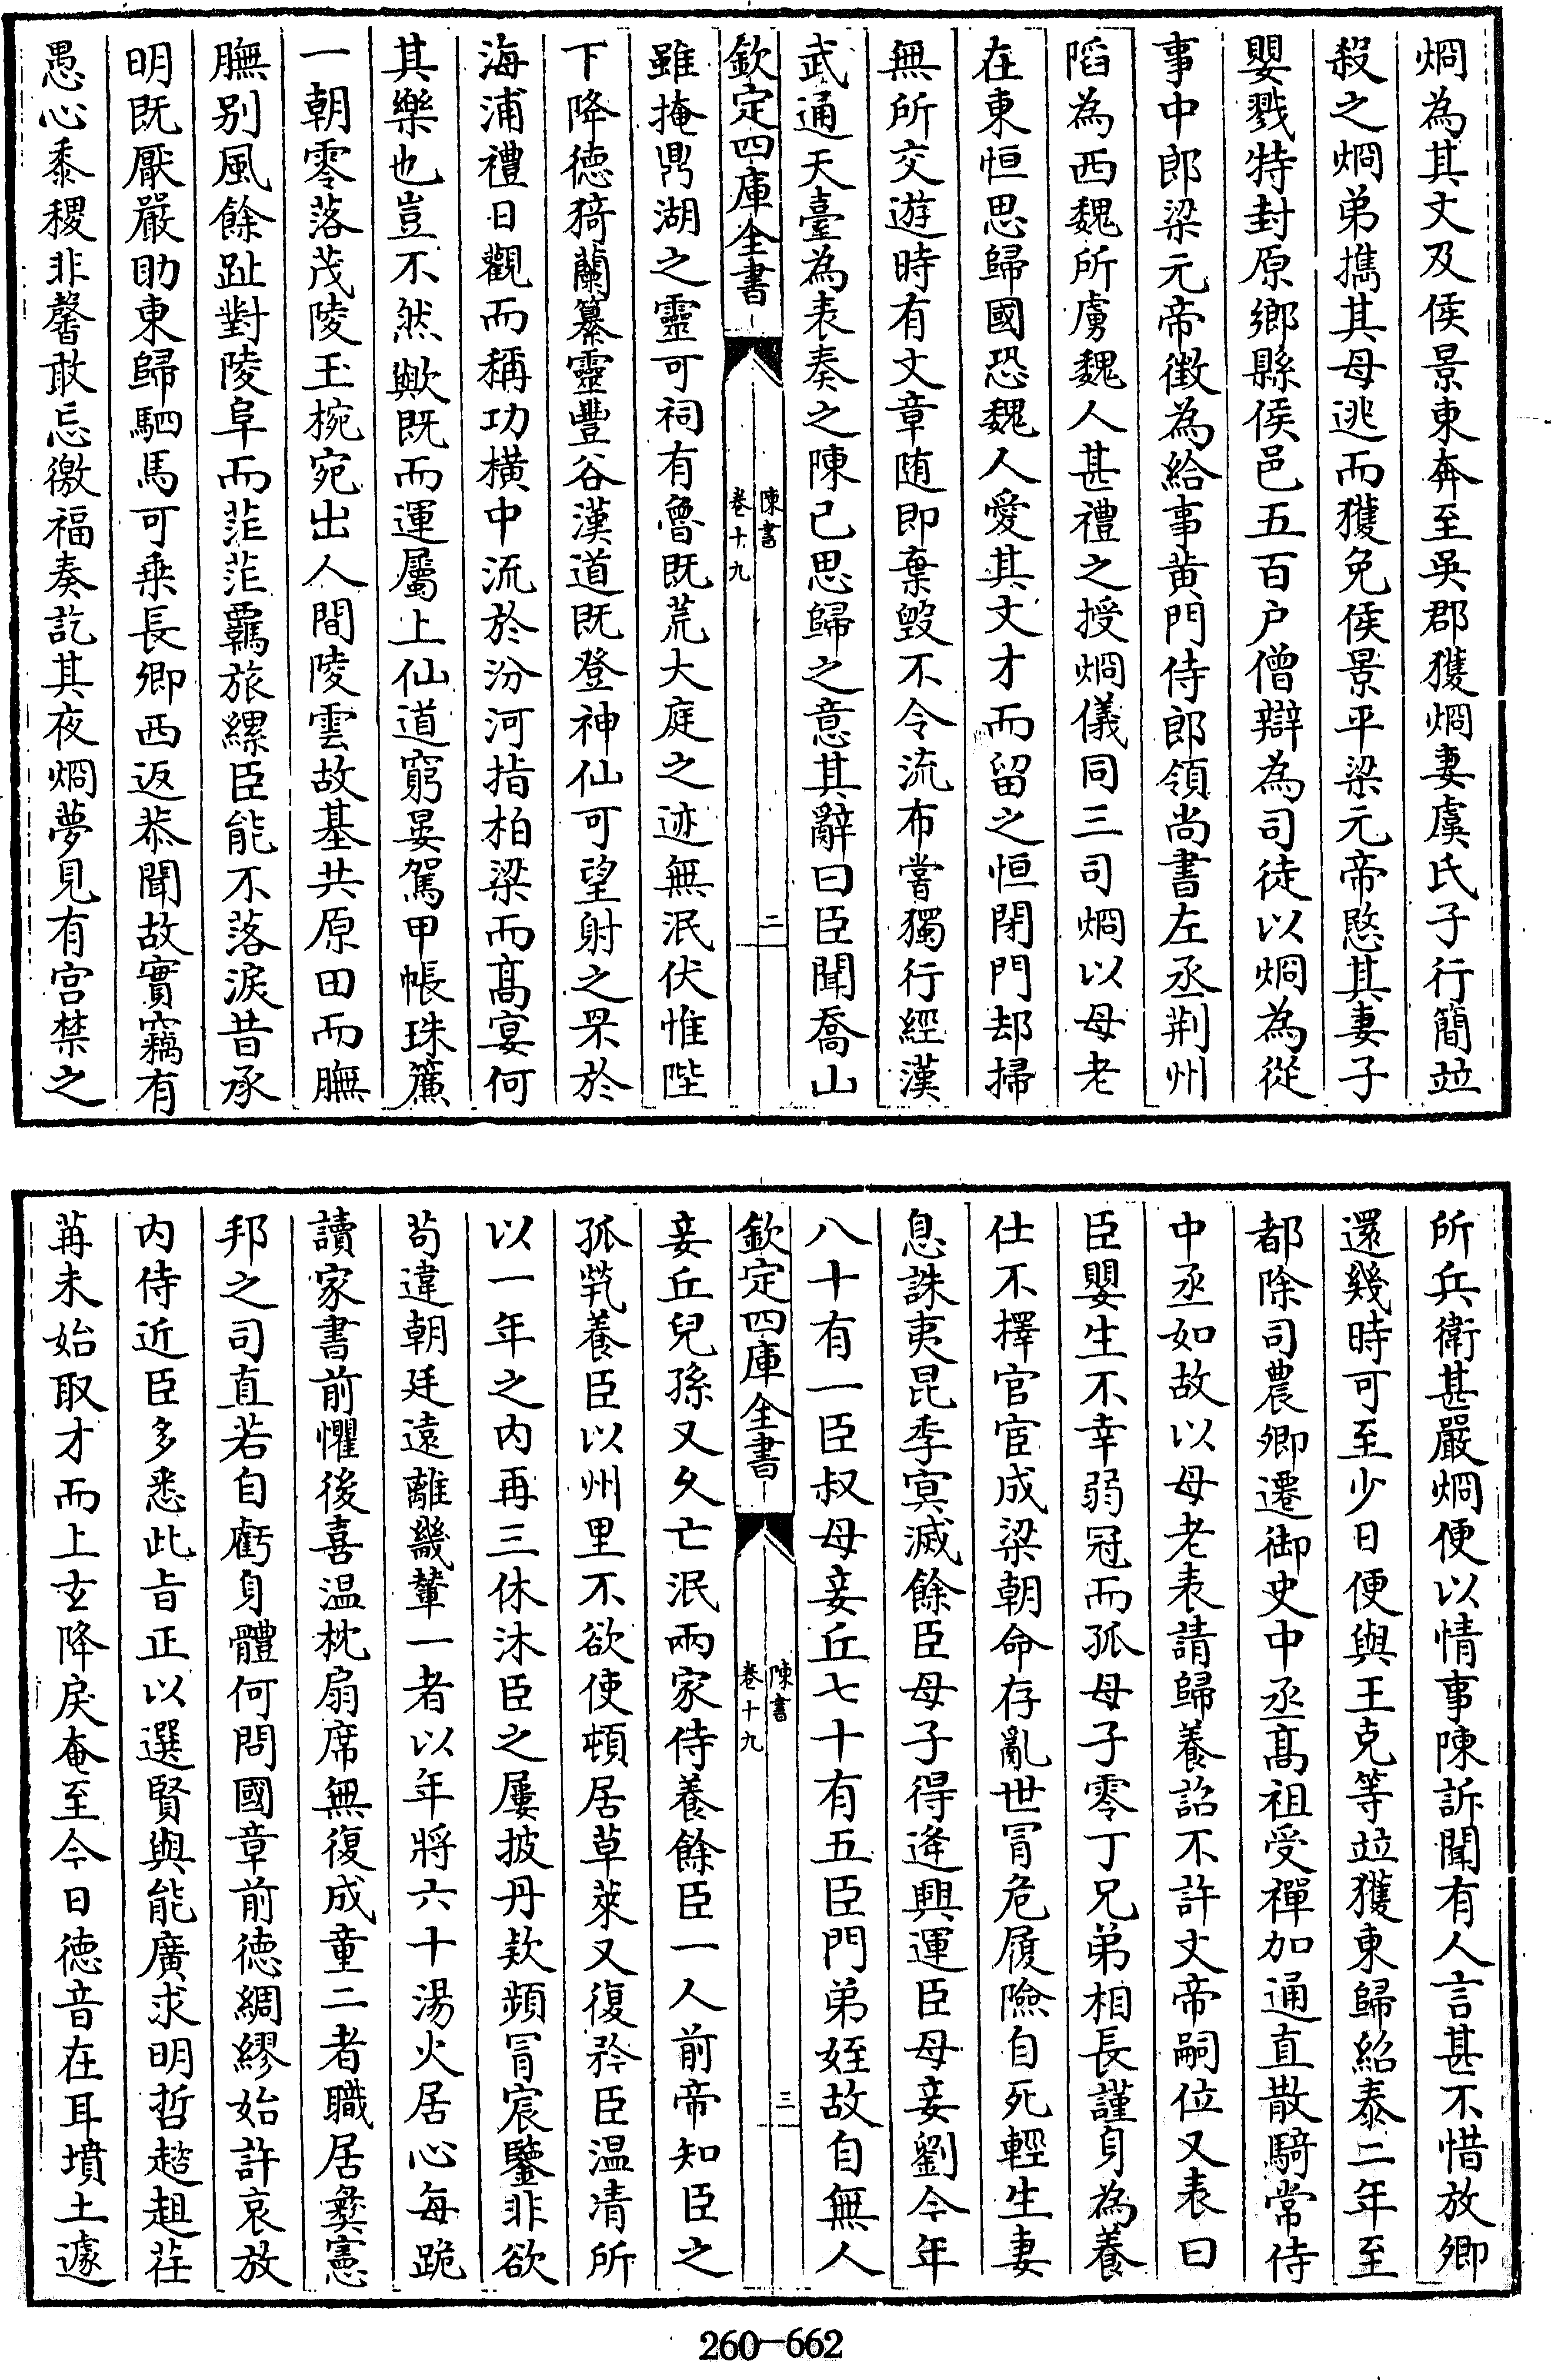 烱為其丈及侯景東奔至吳郡獲烱妻虞氏子行簡竝
殺之烱弟攜其母逃而獲免侯景平梁元帝愍其妻子
嬰戮特封原鄉縣侯邑五百户僧辯為司徒以烱為從
事中郎梁元帝徴為給事黄門侍郎領尚書左丞荆州
䧟為西魏所虜魏人甚禮之授烱儀同三司烱以母老
在東恒思歸國恐魏人愛其文才而留之恒閉門却掃
無所交遊時有文章随即棄毁不令流布嘗獨行經漢
武通天臺為表奏之陳己思歸之意其辭曰臣聞喬山
欽定四庫全書
陳書
卷十九
二
雖掩鼎湖之靈可祠有魯既荒大庭之迹無泯伏惟陛
下降德猗蘭纂靈豐谷漢道既登神仙可望射之罘於
海浦禮日觀而稱功横中流於汾河指柏梁而髙宴何
其樂也豈不然歟既而運屬上仙道窮晏駕甲帳珠簾
一朝零落茂陵玉椀宛出人間陵雲故基共原田而膴
膴别風餘趾對陵阜而茫茫覊旅縲臣能不落淚昔承
明既厭嚴助東歸駟馬可乗長卿西返恭聞故實竊有
愚心黍稷非馨敢忘徼福奏訖其夜烱夢見有宫禁之
所兵衛甚嚴烱便以情事陳訴聞有人言甚不惜放卿
還幾時可至少日便與王克等竝獲東歸紹泰二年至
都除司農卿遷御史中丞髙祖受禪加通直散騎常侍
中丞如故以母老表請歸養詔不許文帝嗣位又表曰
臣嬰生不幸弱冠而孤母子零丁兄弟相長謹身為養
仕不擇官宦成梁朝命存亂世冐危履險自死輕生妻
息誅夷昆季㝠滅餘臣母子得逄興運臣母妾劉今年
八十有一臣叔母妾丘七十有五臣門弟姪故自無人
欽定四庫全書
陳書
卷十九
三
妾丘兒孫又乆亡泯兩家侍養餘臣一人前帝知臣之
孤煢養臣以州里不欲使頓居草萊又復矜臣温凊所
以一年之内再三休沐臣之屢披丹欵頻冐宸鑒非欲
茍違朝廷遠離畿輦一者以年將六十湯火居心每跪
讀家書前懼後喜温枕扇席無復成童二者職居彜憲
邦之司直若自虧身體何問國章前徳綢繆始許哀放
内侍近臣多悉此㫖正以選賢與能廣求明哲趑趄荏
苒未始取才而上𤣥降戾奄至今日徳音在耳墳土遽
260-662